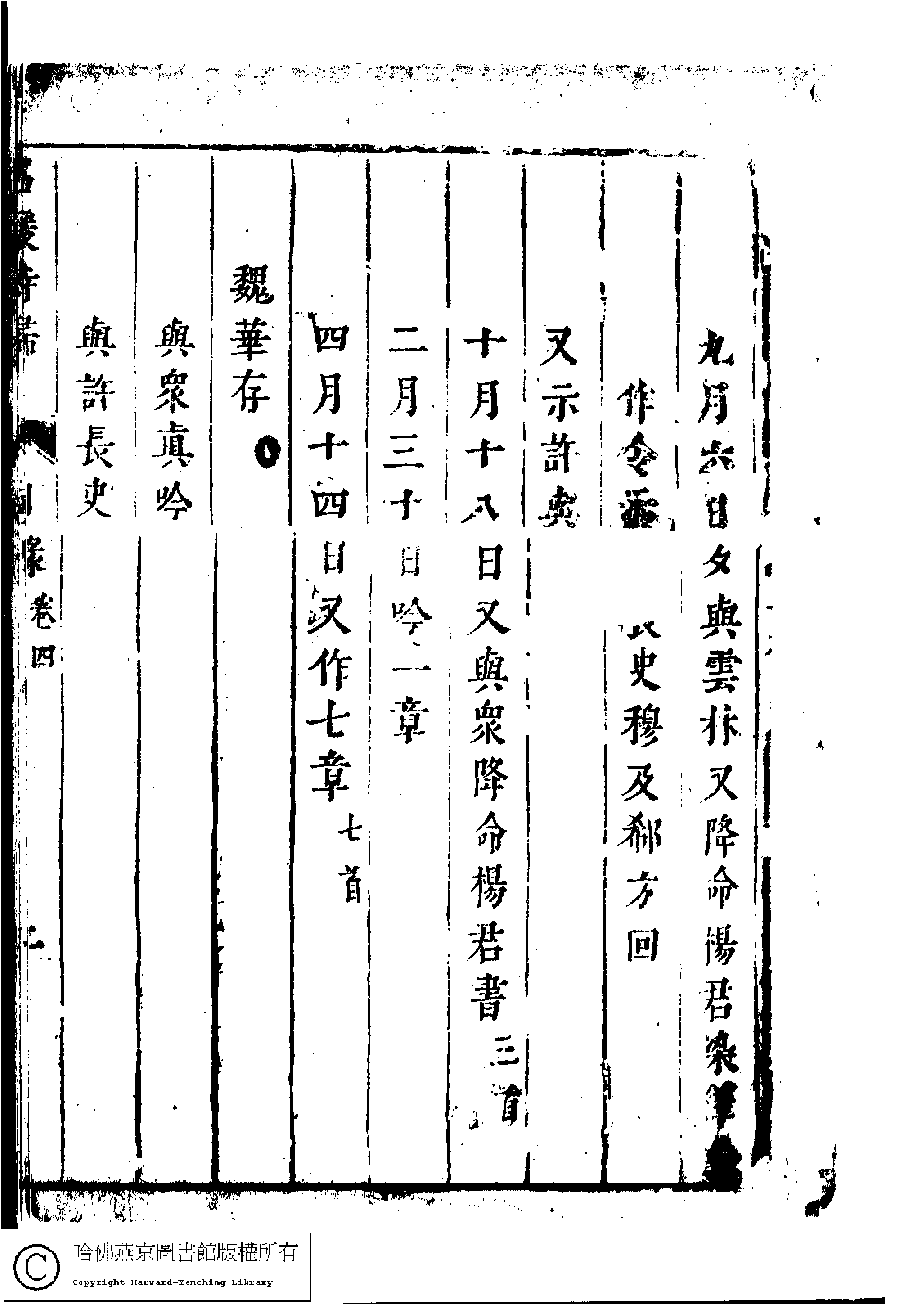 九月六日夕與雲林又降命楊君染筆
作令示許長史穆及郗方回
又示許
十月十八日又與眾降命楊君書 三首
二月三十日吟一章
四月十四日又作七章 七首
魏華存
與眾真吟
與許長史
名媛詩歸 目錄卷四 二
哈佛燕京圖書館版權所有
Copyright Harvard-Yenching Library